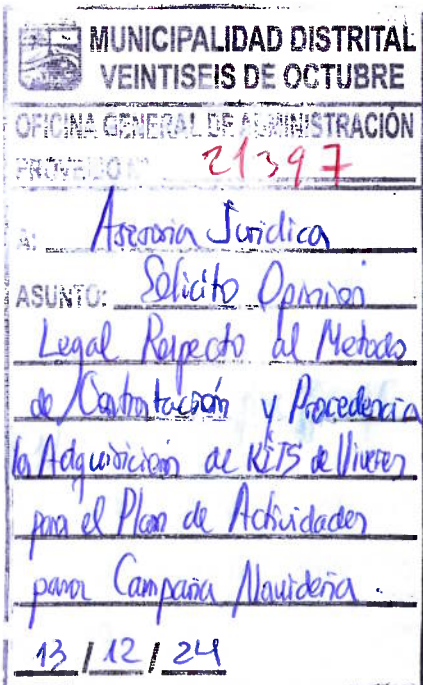 MUNICIPALIDAD DISTRITAL
VEINTISEIS DE OCTUBRE
OFICINA GENERAL DE ADMINISTRACIÓN
PROVEIDO N° 21397
A: Asesoria Juridica
ASUNTO: Solicito Opinion
Legal Respecto al Metodo
de Contratación y Procedencia
la Adquisición de KITS de Viveres
para el Plan de Actividades
para Campaña Navideña.
13 / 12 / 24